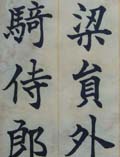 梁員外
騎侍郎